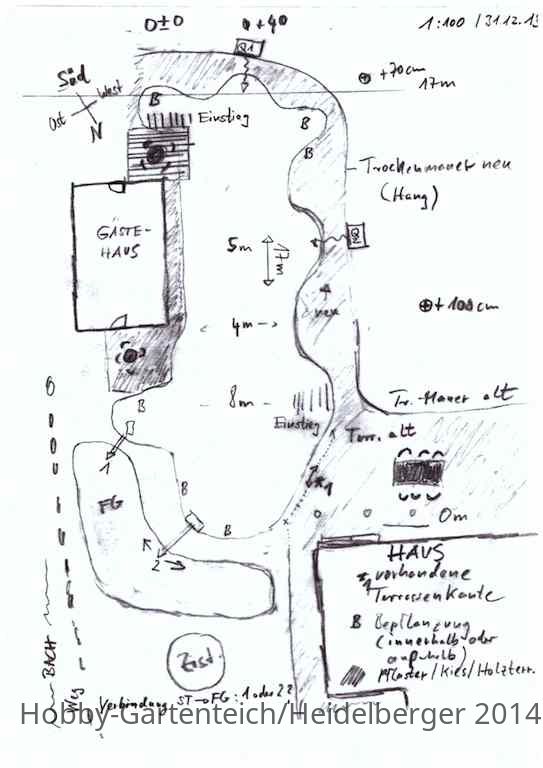 0±0
0 + 40
1:100 / 31.12.13
Q1
Süd
West
Ost
N
+70cm
17m
B
Einstieg
B
B
Trockenmauer neu
(Hang)
GÄSTE-
HAUS
5m
17m
Q2
neu
+100cm
4m
8m
B
Einstieg
Tr.-Mauer alt
Terr. alt
1
B
FG
*1
0m
B
2
HAUS
*1 vorhandene
Terrassenkante
B Bepflanzung
(innerhalb oder
außerhalb)
Pflaster/Kies/Holzterr.
BACH
Weg
Zist.
Verbindung ST → FG: 1 oder 2?
Hobby-Gartenteich/Heidelberger 2014